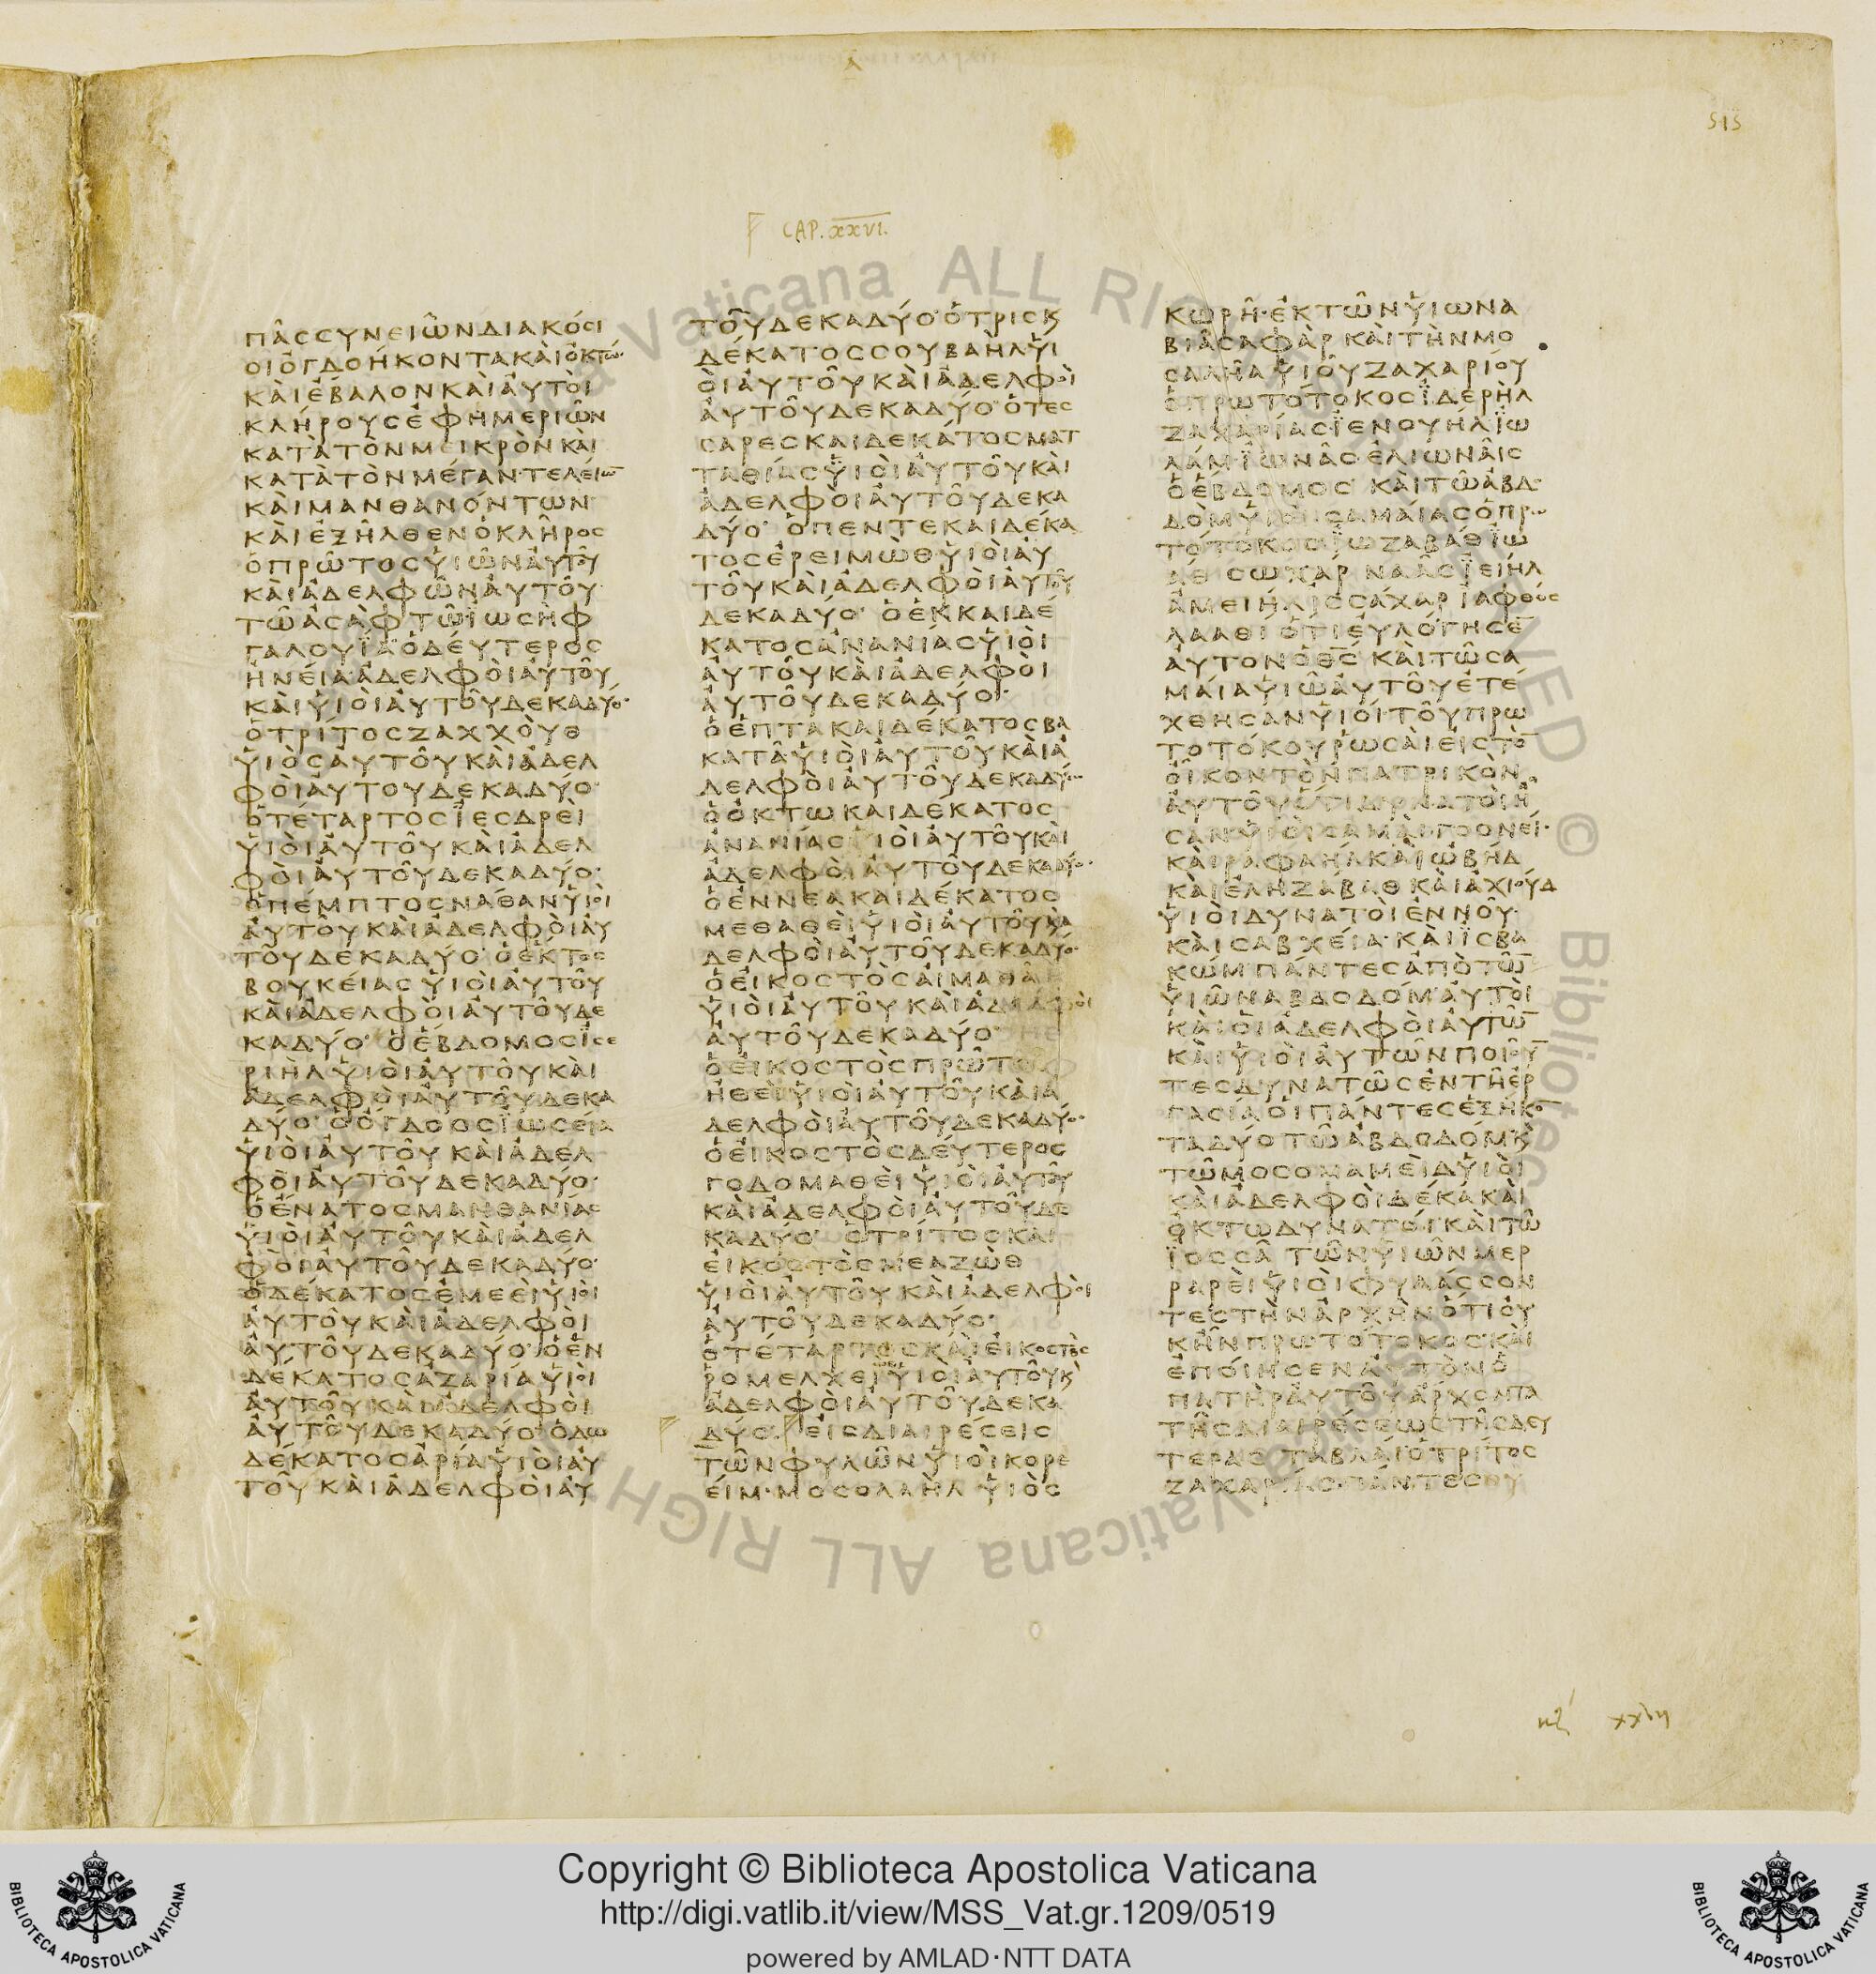 515
CAP. XXVI.
ΠΑССΥΝΕΙΩΝΔΙΑΚΟСΙ
ΟΙΟΓΔΟΗΚΟΝΤΑΚΑΙΟΚΤΩ·
ΚΑΙΕΒΑΛΟΝΚΑΙΑΥΤΟΙ
ΚΛΗΡΟΥСΕΦΗΜΕΡΙΩΝ
ΚΑΤΑΤΟΝΜΕΙΚΡΟΝΚΑΙ
ΚΑΤΑΤΟΝΜΕΓΑΝ·ΤΕΛΕΙΩ̅
ΚΑΙΜΑΝΘΑΝΟΝΤΩΝ
ΚΑΙΕΞΗΛΘΕΝΟΚΛΗΡΟС
ΟΠΡΩΤΟСΥΙΩΝΑΥΤΟΥ
ΚΑΙΑΔΕΛΦΩΝΑΥΤΟΥ
ΤΩΑСΑΦΤΩΪΩСΗΦ
ΓΑΛΟΥΪΑ·ΟΔΕΥΤΕΡΟС
ΗΝΕΙΑ·ΑΔΕΛΦΟΙΑΥΤΟΥ
ΚΑΙΥΙΟΙΑΥΤΟΥΔΕΚΑΔΥΟ·
ΟΤΡΙΤΟСΖΑΧΧΟΥΘ
ΥΙΟСΑΥΤΟΥΚΑΙΑΔΕΛ
ΦΟΙΑΥΤΟΥΔΕΚΑΔΥΟ·
ΟΤΕΤΑΡΤΟСΪΕСΔΡΕΙ
ΥΙΟΙΑΥΤΟΥΚΑΙΑΔΕΛ
ΦΟΙΑΥΤΟΥΔΕΚΑΔΥΟ·
ΟΠΕΜΠΤΟСΝΑΘΑΝΥΙΟΙ
ΑΥΤΟΥΚΑΙΑΔΕΛΦΟΙΑΥ
ΤΟΥΔΕΚΑΔΥΟ·ΟΕΚΤΟС
ΒΟΥΚΕΙΑСΥΙΟΙΑΥΤΟΥ
ΚΑΙΑΔΕΛΦΟΙΑΥΤΟΥΔΕ
ΚΑΔΥΟ·ΟΕΒΔΟΜΟСΪСΕ
ΡΙΗΛΥΙΟΙΑΥΤΟΥΚΑΙ
ΑΔΕΛΦΟΙΑΥΤΟΥΔΕΚΑ
ΔΥΟ·ΟΟΓΔΟΟСΪΩСΕΙΑ
ΥΙΟΙΑΥΤΟΥΚΑΙΑΔΕΛ
ΦΟΙΑΥΤΟΥΔΕΚΑΔΥΟ·
ΟΕΝΑΤΟСΜΑΝΘΑΝΙΑС
ΥΙΟΙΑΥΤΟΥΚΑΙΑΔΕΛ
ΦΟΙΑΥΤΟΥΔΕΚΑΔΥΟ·
ΟΔΕΚΑΤΟСΕΜΕΕΙΥΙΟΙ
ΑΥΤΟΥΚΑΙΑΔΕΛΦΟΙ
ΑΥΤΟΥΔΕΚΑΔΥΟ·ΟΕΝ
ΔΕΚΑΤΟСΑΖΑΡΙΑΥΙΟΙ
ΑΥΤΟΥΚΑΙΑΔΕΛΦΟΙ
ΑΥΤΟΥΔΕΚΑΔΥΟ·ΟΔΩ
ΔΕΚΑΤΟСΑΡΙΑΥΙΟΙΑΥ
ΤΟΥΚΑΙΑΔΕΛΦΟΙΑΥ
ΤΟΥΔΕΚΑΔΥΟ·ΟΤΡΙСΚϚ
ΔΕΚΑΤΟССΟΥΒΑΗΛΥΙ
ΟΙΑΥΤΟΥΚΑΙΑΔΕΛΦΟΙ
ΑΥΤΟΥΔΕΚΑΔΥΟ·ΟΤΕС
СΑΡΕСΚΑΙΔΕΚΑΤΟСΜΑΤ
ΤΑΘΙΑСΥΙΟΙΑΥΤΟΥΚΑΙ
ΑΔΕΛΦΟΙΑΥΤΟΥΔΕΚΑ
ΔΥΟ·ΟΠΕΝΤΕΚΑΙΔΕΚΑ
ΤΟСΕΡΕΙΜΩΘΥΙΟΙΑΥ
ΤΟΥΚΑΙΑΔΕΛΦΟΙΑΥΤΟΥ
ΔΕΚΑΔΥΟ·ΟΕΚΚΑΙΔΕ
ΚΑΤΟСΑΝΑΝΙΑСΥΙΟΙ
ΑΥΤΟΥΚΑΙΑΔΕΛΦΟΙ
ΑΥΤΟΥΔΕΚΑΔΥΟ·
ΟΕΠΤΑΚΑΙΔΕΚΑΤΟСΒΑ
ΚΑΤΑΥΙΟΙΑΥΤΟΥΚΑΙΑ
ΔΕΛΦΟΙΑΥΤΟΥΔΕΚΑΔΥΟ·
ΟΟΚΤΩΚΑΙΔΕΚΑΤΟС
ΑΝΑΝΙΑСΥΙΟΙΑΥΤΟΥΚΑΙ
ΑΔΕΛΦΟΙΑΥΤΟΥΔΕΚΑΔΥΟ·
ΟΕΝΝΕΑΚΑΙΔΕΚΑΤΟС
ΜΕΘΑΘΕΙΥΙΟΙΑΥΤΟΥΚΑ
ΔΕΛΦΟΙΑΥΤΟΥΔΕΚΑΔΥΟ·
ΟΕΙΚΟСΤΟСΑΙΜΑΘΑ
ΥΙΟΙΑΥΤΟΥΚΑΙΑΔΕΛΦΟΙ
ΑΥΤΟΥΔΕΚΑΔΥΟ
ΟΕΙΚΟСΤΟСΠΡΩΤΟС
ΗΘΕΙΥΙΟΙΑΥΤΟΥΚΑΙΑ
ΔΕΛΦΟΙΑΥΤΟΥΔΕΚΑΔΥΟ·
ΟΕΙΚΟСΤΟСΔΕΥΤΕΡΟС
ΓΟΔΟΜΑΘΕΙΥΙΟΙΑΥΤΟΥ
ΚΑΙΑΔΕΛΦΟΙΑΥΤΟΥΔΕ
ΚΑΔΥΟ·ΟΤΡΙΤΟСΚΑΙ
ΕΙΚΟСΤΟСΜΕΑΖΩΘ
ΥΙΟΙΑΥΤΟΥΚΑΙΑΔΕΛΦΟΙ
ΑΥΤΟΥΔΕΚΑΔΥΟ·
ΟΤΕΤΑΡΤΟСΚΑΙΕΙΚΟСΤΟС
ΡΟΜΕΛΧΕΙΥΙΟΙΑΥΤΟΥΚϚ
ΑΔΕΛΦΟΙΑΥΤΟΥΔΕΚΑ
ΔΥΟ·ΕΙСΔΙΑΙΡΕСΕΙС
ΤΩΝΦΥΛΩΝΥΙΟΙΚΟΡΕ
ΕΙΜ·ΜΟСΟΛΑΗΛΥΙΟС
ΚΩΡΗ·ΕΚΤΩΝΥΙΩΝΑ
ΒΙΑСΑΦΑΡΚΑΙΤΗΝΜΟ
СΑΛΗΑΥΙΟΥΖΑΧΑΡΙΟΥ
ΟΠΡΩΤΟΤΟΚΟСΪΔΕΡΗΛ
ΖΑΧΑΡΙΑС·ΪΕΝΟΥΗΛΪΩ
ΛΑΜ·ΪΩΝΑС·ΕΛΙΩΝΑΙС
ΟΕΒΔΟΜΟС·ΚΑΙΤΩΑΒΔ
ΔΟΜΥΙΟΙСΑΜΑΙΑСΟΠΡΩ
ΤΟΤΟΚΟСΪΩΖΑΒΑΘΪΩ
ΑΘ·СΩΧΑΡ·ΝΑΑСΪΕΙΗΛ
ΑΜΕΙΗΛ·ΙССΑΧΑΡΙΑΦΘΟС
ΛΑΑΘΙΟΤΙΕΥΛΟΓΗСΕ̅
ΑΥΤΟΝΟΘ̅С̅·ΚΑΙΤΩСΑ
ΜΑΙΑΥΙΩΑΥΤΟΥΕΤΕ
ΧΘΗСΑΝΥΙΟΙΤΟΥΠΡΩ
ΤΟΤΟΚΟΥΡΩСΑΙΕΙСΤΟ̅
ΟΙΚΟΝΤΟΝΠΑΤΡΙΚΟΝ
ΑΥΤΟΥΟΤΙΔΥΝΑΤΟΙΗ
СΑΝΥΙΟΙСΑΜΑΙΓΟΟΝΕΙ·
ΚΑΙΡΑΦΑΗΛΚΑΙΩΒΗΔ
ΚΑΙΕΛΗΖΑΒΑΘΚΑΙΑΧΙΟΥΔ
ΥΙΟΙΔΥΝΑΤΟΙΕΝΝΟΥ·
ΚΑΙСΑΒΧΕΙΑ·ΚΑΙΪСΒΑ
ΚΩΜ·ΠΑΝΤΕСΑΠΟΤΩ̅
ΥΙΩΝΑΒΔΟΔΟΜ·ΑΥΤΟΙ
ΚΑΙΟΙΑΔΕΛΦΟΙΑΥΤΩ̅
ΚΑΙΥΙΟΙΑΥΤΩΝΠΟΙΟΥ̅
ΤΕСΔΥΝΑΤΩСΕΝΤΗΕΡ
ΓΑСΙΑΟΙΠΑΝΤΕСΕΞΗΚΟ̅
ΤΑΔΥΟΤΩΑΒΔΟΔΟΜΚϚ
ΤΩΜΟСΟΜΑΜΕΙΔΥΙΟΙ
ΚΑΙΑΔΕΛΦΟΙΔΕΚΑΚΑΙ
ΟΚΤΩΔΥΝΑΤΟΙΚΑΙΤΩ
ΪΟССΑΤΩΝΥΙΩΝΜΕΡ
ΡΑΡΕΙΥΙΟΙΦΥΛΑССΟΝ
ΤΕСΤΗΝΑΡΧΗΝΟΤΙΟΥ
ΚΗΝΠΡΩΤΟΤΟΚΟСΚΑΙ
ΕΠΟΙΗСΕΝΑΥΤΟΝΟ
ΠΑΤΗΡΑΥΤΟΥΑΡΧΟΝΤΑ
ΤΗСΔΙΑΙΡΕСΕΩСΤΗСΔΕΥ
ΤΕΡΑС·ΤΑΒΛΑΙΟΤΡΙΤΟС
ΖΑΧΑΡΙΑС·ΠΑΝΤΕС
Copyright © Biblioteca Apostolica Vaticana
http://digi.vatlib.it/view/MSS_Vat.gr.1209/0519
powered by AMLAD·NTT DATA
BIBLIOTECA APOSTOLICA VATICANA
BIBLIOTECA APOSTOLICA VATICANA